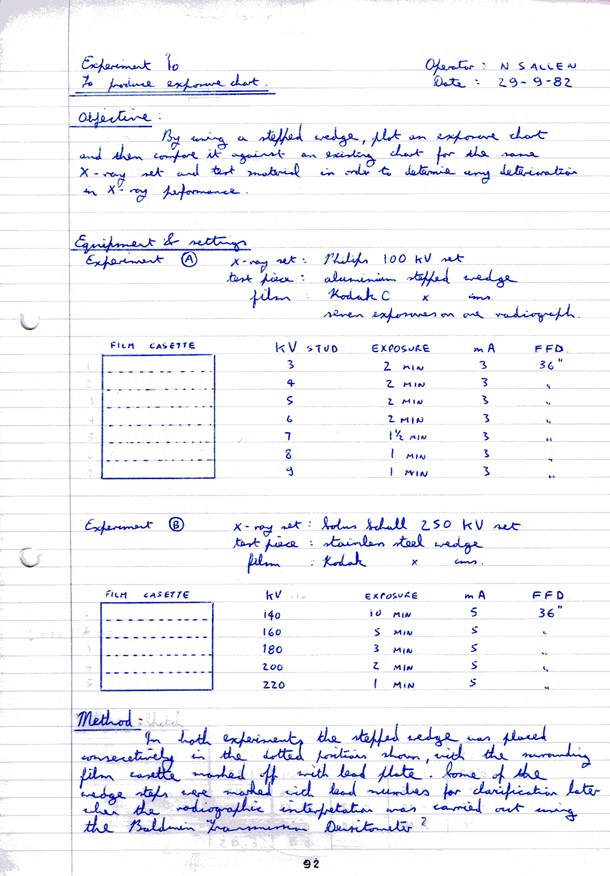 Experiment 10 Operator : N SALLEN
To produce exposure chart. Date : 29-9-82
Objective :
By using a stepped wedge, plot an exposure chart
and then compare it against an existing chart for the same
X-ray set and test material in order to determine any deterioration
in X-ray performance.
Equipment & settings
Experiment (A) X-ray set : Philips 100 KV set
test piece : aluminium stepped wedge
film : Kodak C x cms
seven exposures on one radiograph.
FILM CASETTE KV STUD EXPOSURE mA FFD
1 3 2 MIN 3 36"
2 4 2 MIN 3 "
3 5 2 MIN 3 "
4 6 2 MIN 3 "
5 7 1½ MIN 3 "
6 8 1 MIN 3 "
7 9 1 MIN 3 "
Experiment (B) X-ray set : Solus Schall 250 KV set
test piece : stainless steel wedge
film : Kodak x cms.
FILM CASETTE KV EXPOSURE mA FFD
1 140 10 MIN 5 36"
2 160 5 MIN 5 "
3 180 3 MIN 5 "
4 200 2 MIN 5 "
5 220 1 MIN 5 "
Method :- Sketch
In both experiments the stepped wedge was placed
consecutively in the dotted positions shown, with the surrounding
film casette masked off with lead plate. Some of the
wedge steps were marked with lead numbers for clarification later
when the radiographic interpretation was carried out using
the Baldwin Transmission Densitometer ?
92